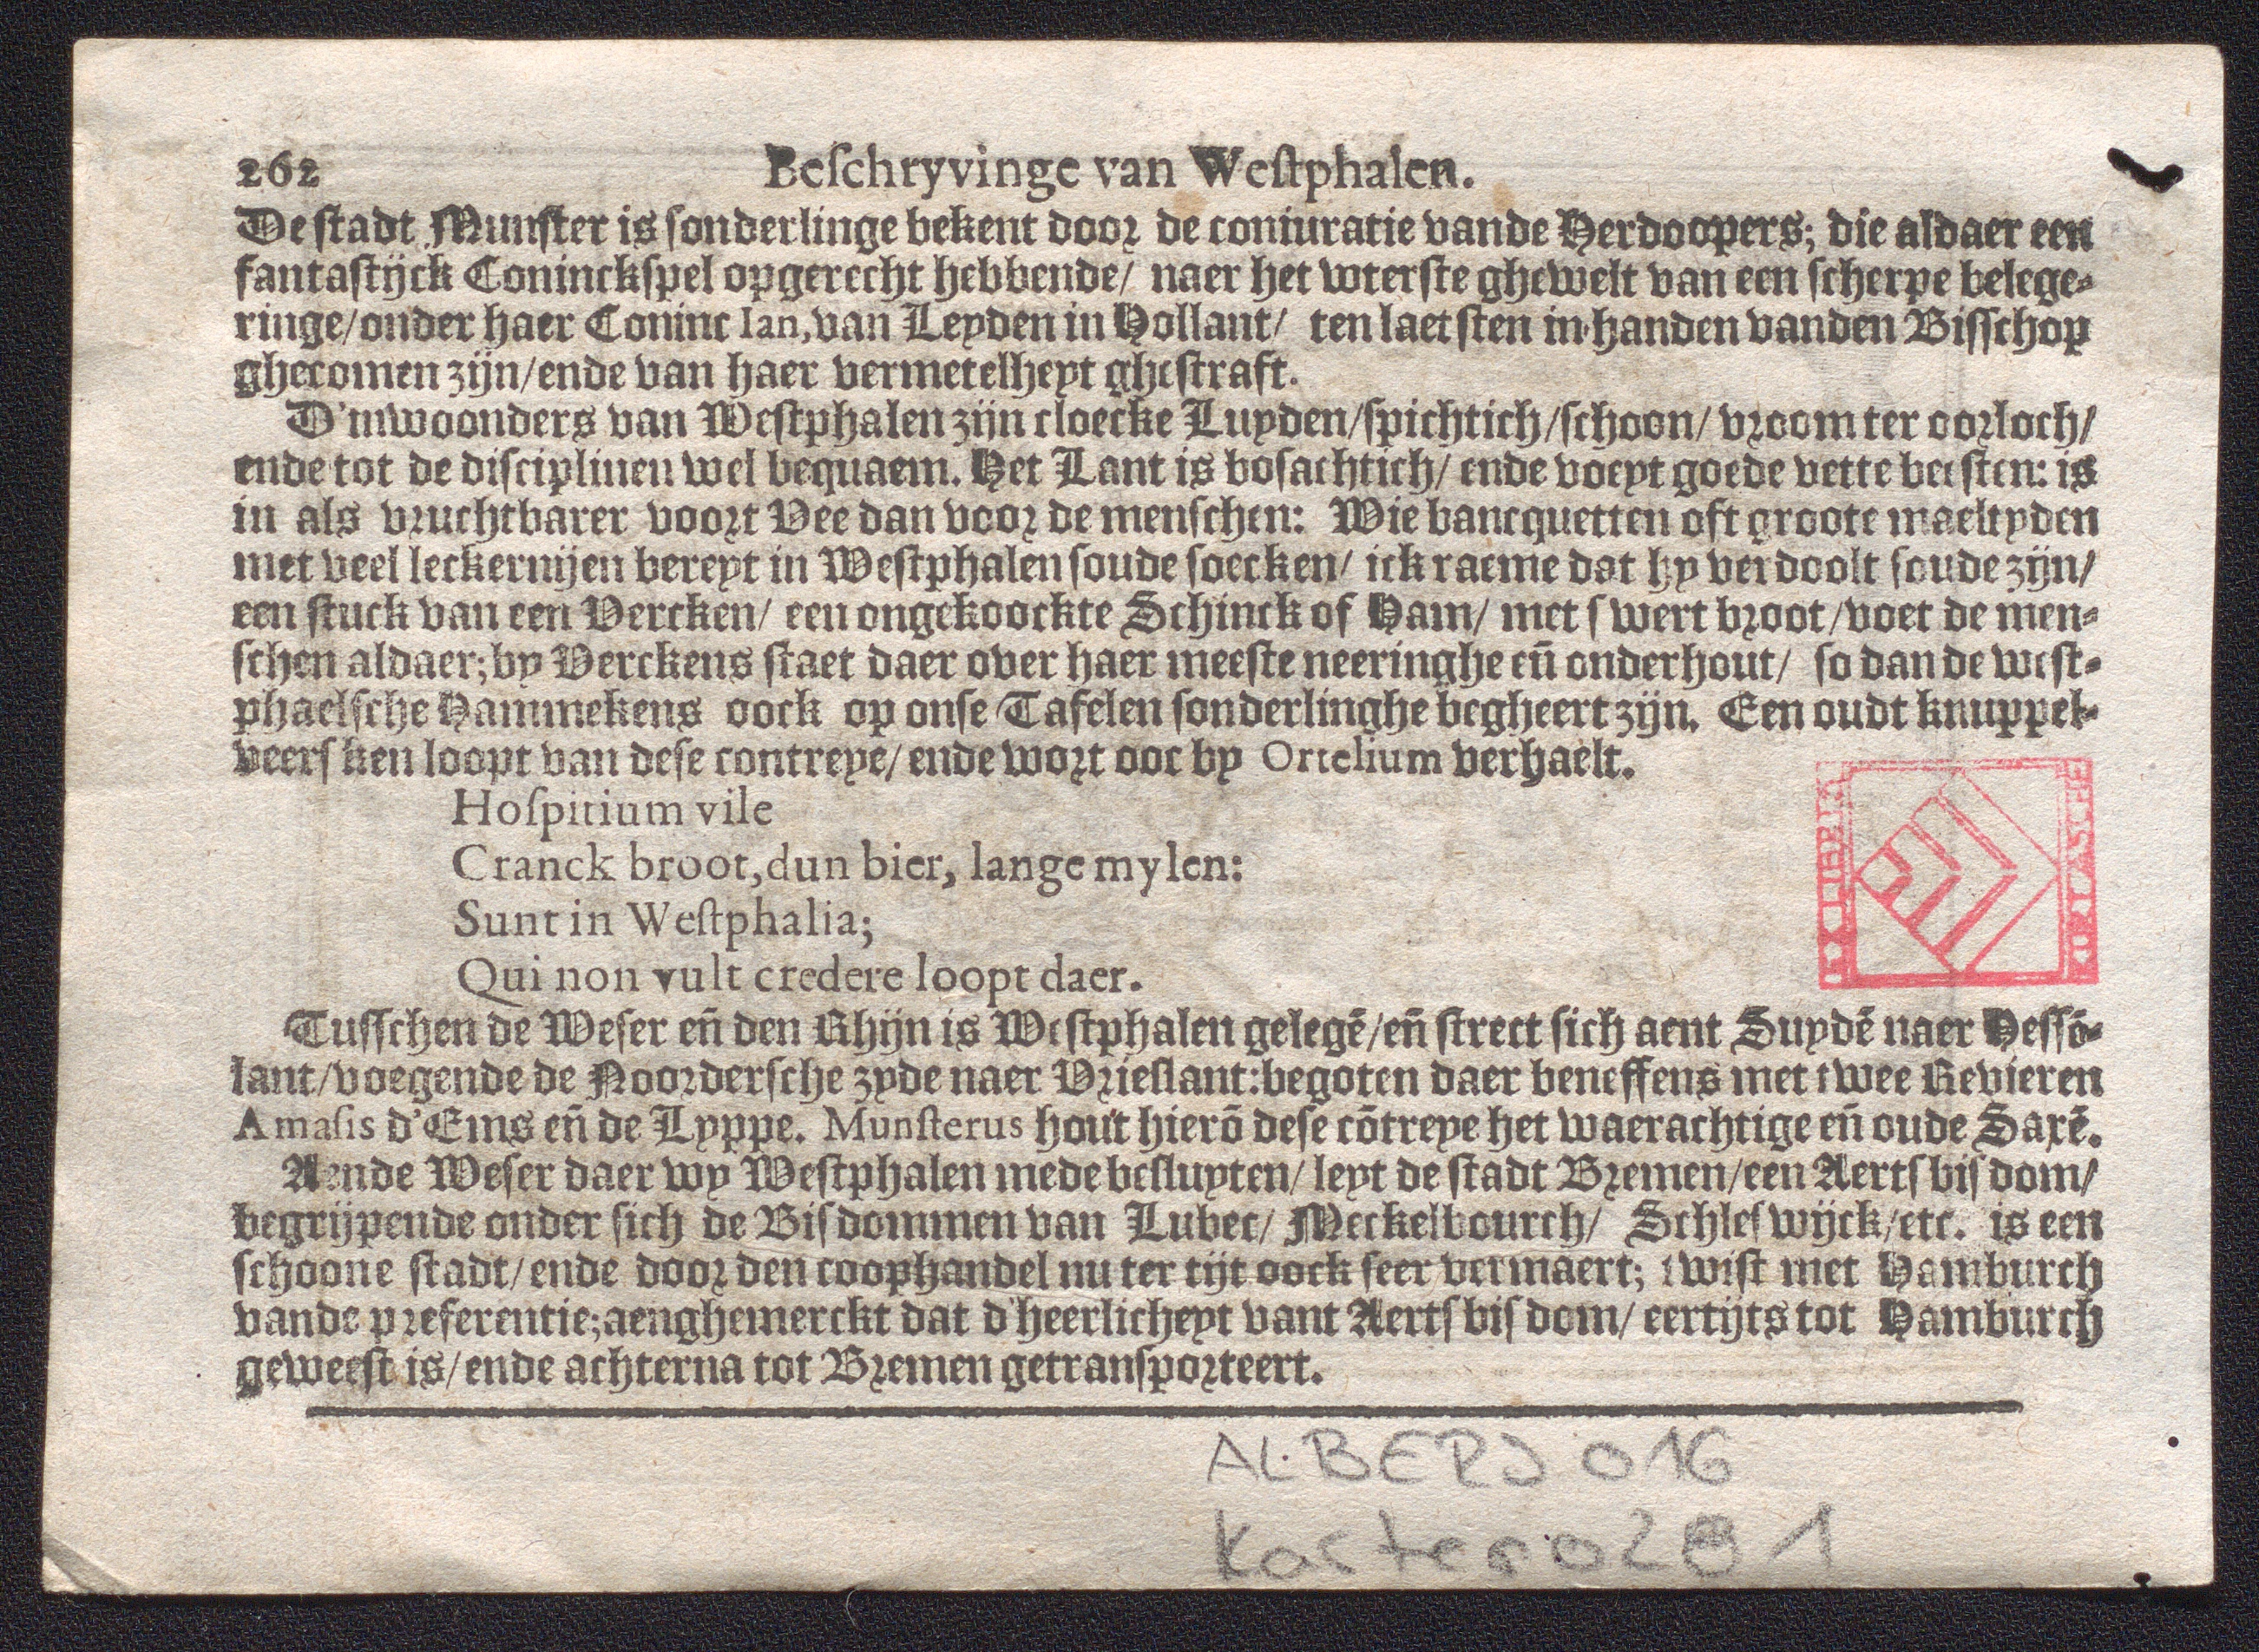 262 Beſchryvinge van Weſtphalen.
De ſtadt Munſter is ſonderlinge bekent door de coniuratie vande Herdoopers; die aldaer een
fantaſtijck Coninckſpel opgerecht hebbende/ naer het wterſte ghewelt van een ſcherpe belege-
ringe/onder haer Coninc Ian, van Leyden in Hollant/ ten laetſten in handen vanden Biſſchop
ghecomen zijn/ende van haer vermetelheyt gheſtraft.
D'inwoonders van Weſtphalen zijn cloecke Luyden/ſpichtich/ſchoon/ vroom ter oorloch/
ende tot de diſciplinen wel bequaem. Het Lant is boſachtich/ ende voeyt goede vette beeſten: is
in als vruchtbarer voort Vee dan voor de menſchen: Wie bancquetten oft groote maeltyden
met veel leckernijen bereyt in Weſtphalen ſoude ſoecken/ ick raeme dat hy verdoolt ſoude zijn/
een ſtuck van een Vercken/ een ongekoockte Schinck of Ham/ met ſwert broot/voet de men-
ſchen aldaer; by Verckens ſtaet daer over haer meeſte neeringhe eñ onderhout/ ſo dan de weſt-
phaelſche Hammekens oock op onſe Tafelen ſonderlinghe begheert zijn. Een oudt knuppel-
veerſken loopt van deſe contreye/ ende wort ooc by Ortelium verhaelt.
Hoſpitium vile
Cranck broot, dun bier, lange mylen:
Sunt in Weſtphalia;
Qui non vult credere loopt daer.
Tuſſchen de Weſer eñ den Rhijn is Weſtphalen gelegē/eñ ſtrect ſich aent Suydē naer Heſſō-
lant/voegende de Noorderſche zyde naer Vrieſlant: begoten daer beneffens met twee Revieren
Amaſis d'Ems eñ de Lyppe. Munſterus hout hierō deſe cōtreye het waerachtige eñ oude Saxē.
Aende Weſer daer wy Weſtphalen mede beſluyten/ leyt de ſtadt Bremen/een Aertſbiſdom/
begrijpende onder ſich de Biſdommen van Lubec/ Meckelbourch/ Schleſwijck/etc. is een
ſchoone ſtadt/ende door den coophandel nu ter tijt oock ſeer vermaert; twiſt met Hamburch
vande preferentie; aenghemerckt dat d'heerlicheyt vant Aertſbiſdom/ eertijts tot Hamburch
geweeſt is/ende achterna tot Bremen getranſporteert.
ALBERJ 016
Karte 0281